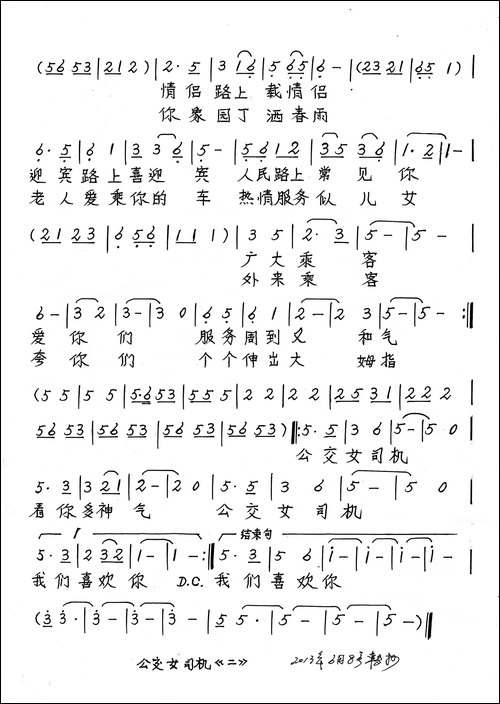 (56 53|212)|2·5|3 16|5 65|6-|(23 21|65 1)|
情侣路上 载情侣
你象园丁 洒春雨
6·5|6 1|3 36|5-|5612|35 35|36|1·2|1-|
迎宾路上喜迎 宾 人民路上常见你
老人爱乘你的 车 热情服务似儿女
(21 23|6 56|11 1)|3 5|2·3|5-|5-|
广大乘 客
外来乘 客
6-|3 2|3-|3 0|6 5|61|2-|2 3|5-|5-:‖
爱你们 服务周到又 和气
夸你们 个个伸出大 姆指
(5 5|5 5|5·6 53|55 5|2 2|2 2|25 31|22 2
56 53|56 53|56 53|56 53)‖:5·5|3 6|5-|5 0
公交女司机
5·3|3 21|2-|2 0|5·5|3 6|5-|5 0
看你多神气 公交女司机
1 结束句
5·3|2 32|1-|1-:‖5·3|5 6|1-|1-|1-|1-|
我们喜欢你 D.C. 我们喜欢你
(3 3·|3-|3-|3-|5 5·|5-|5-|5-)‖
公交女司机《二》 2013年6月8号